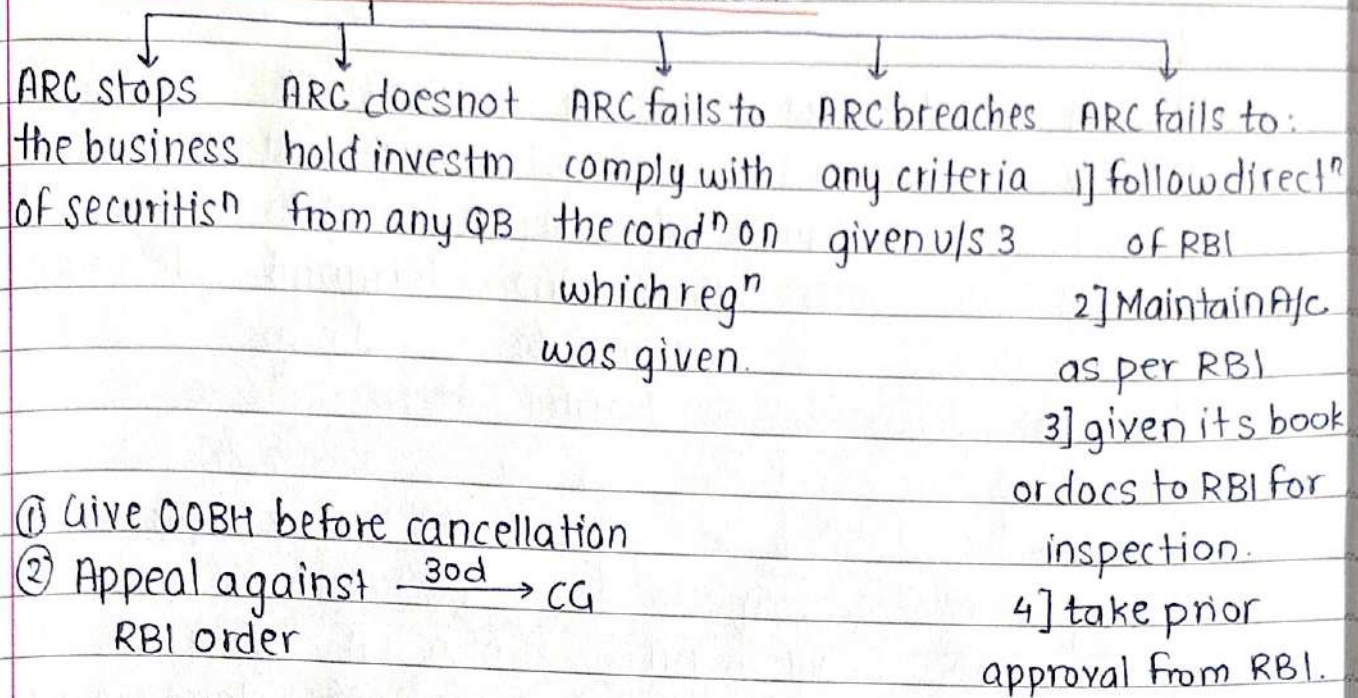 ARC stops
the business
of securitisⁿ
ARC doesnot
hold investm
from any QB
ARC fails to
comply with
the condⁿ on
which regⁿ
was given.
ARC breaches
any criteria
given u/s 3
ARC fails to:
1] follow directⁿ
of RBI
2] Maintain A/c
as per RBI
3] given its book
or docs to RBI for
inspection.
4] take prior
approval from RBI.
① Give OOBH before cancellation
② Appeal against 30d → CG
RBI order